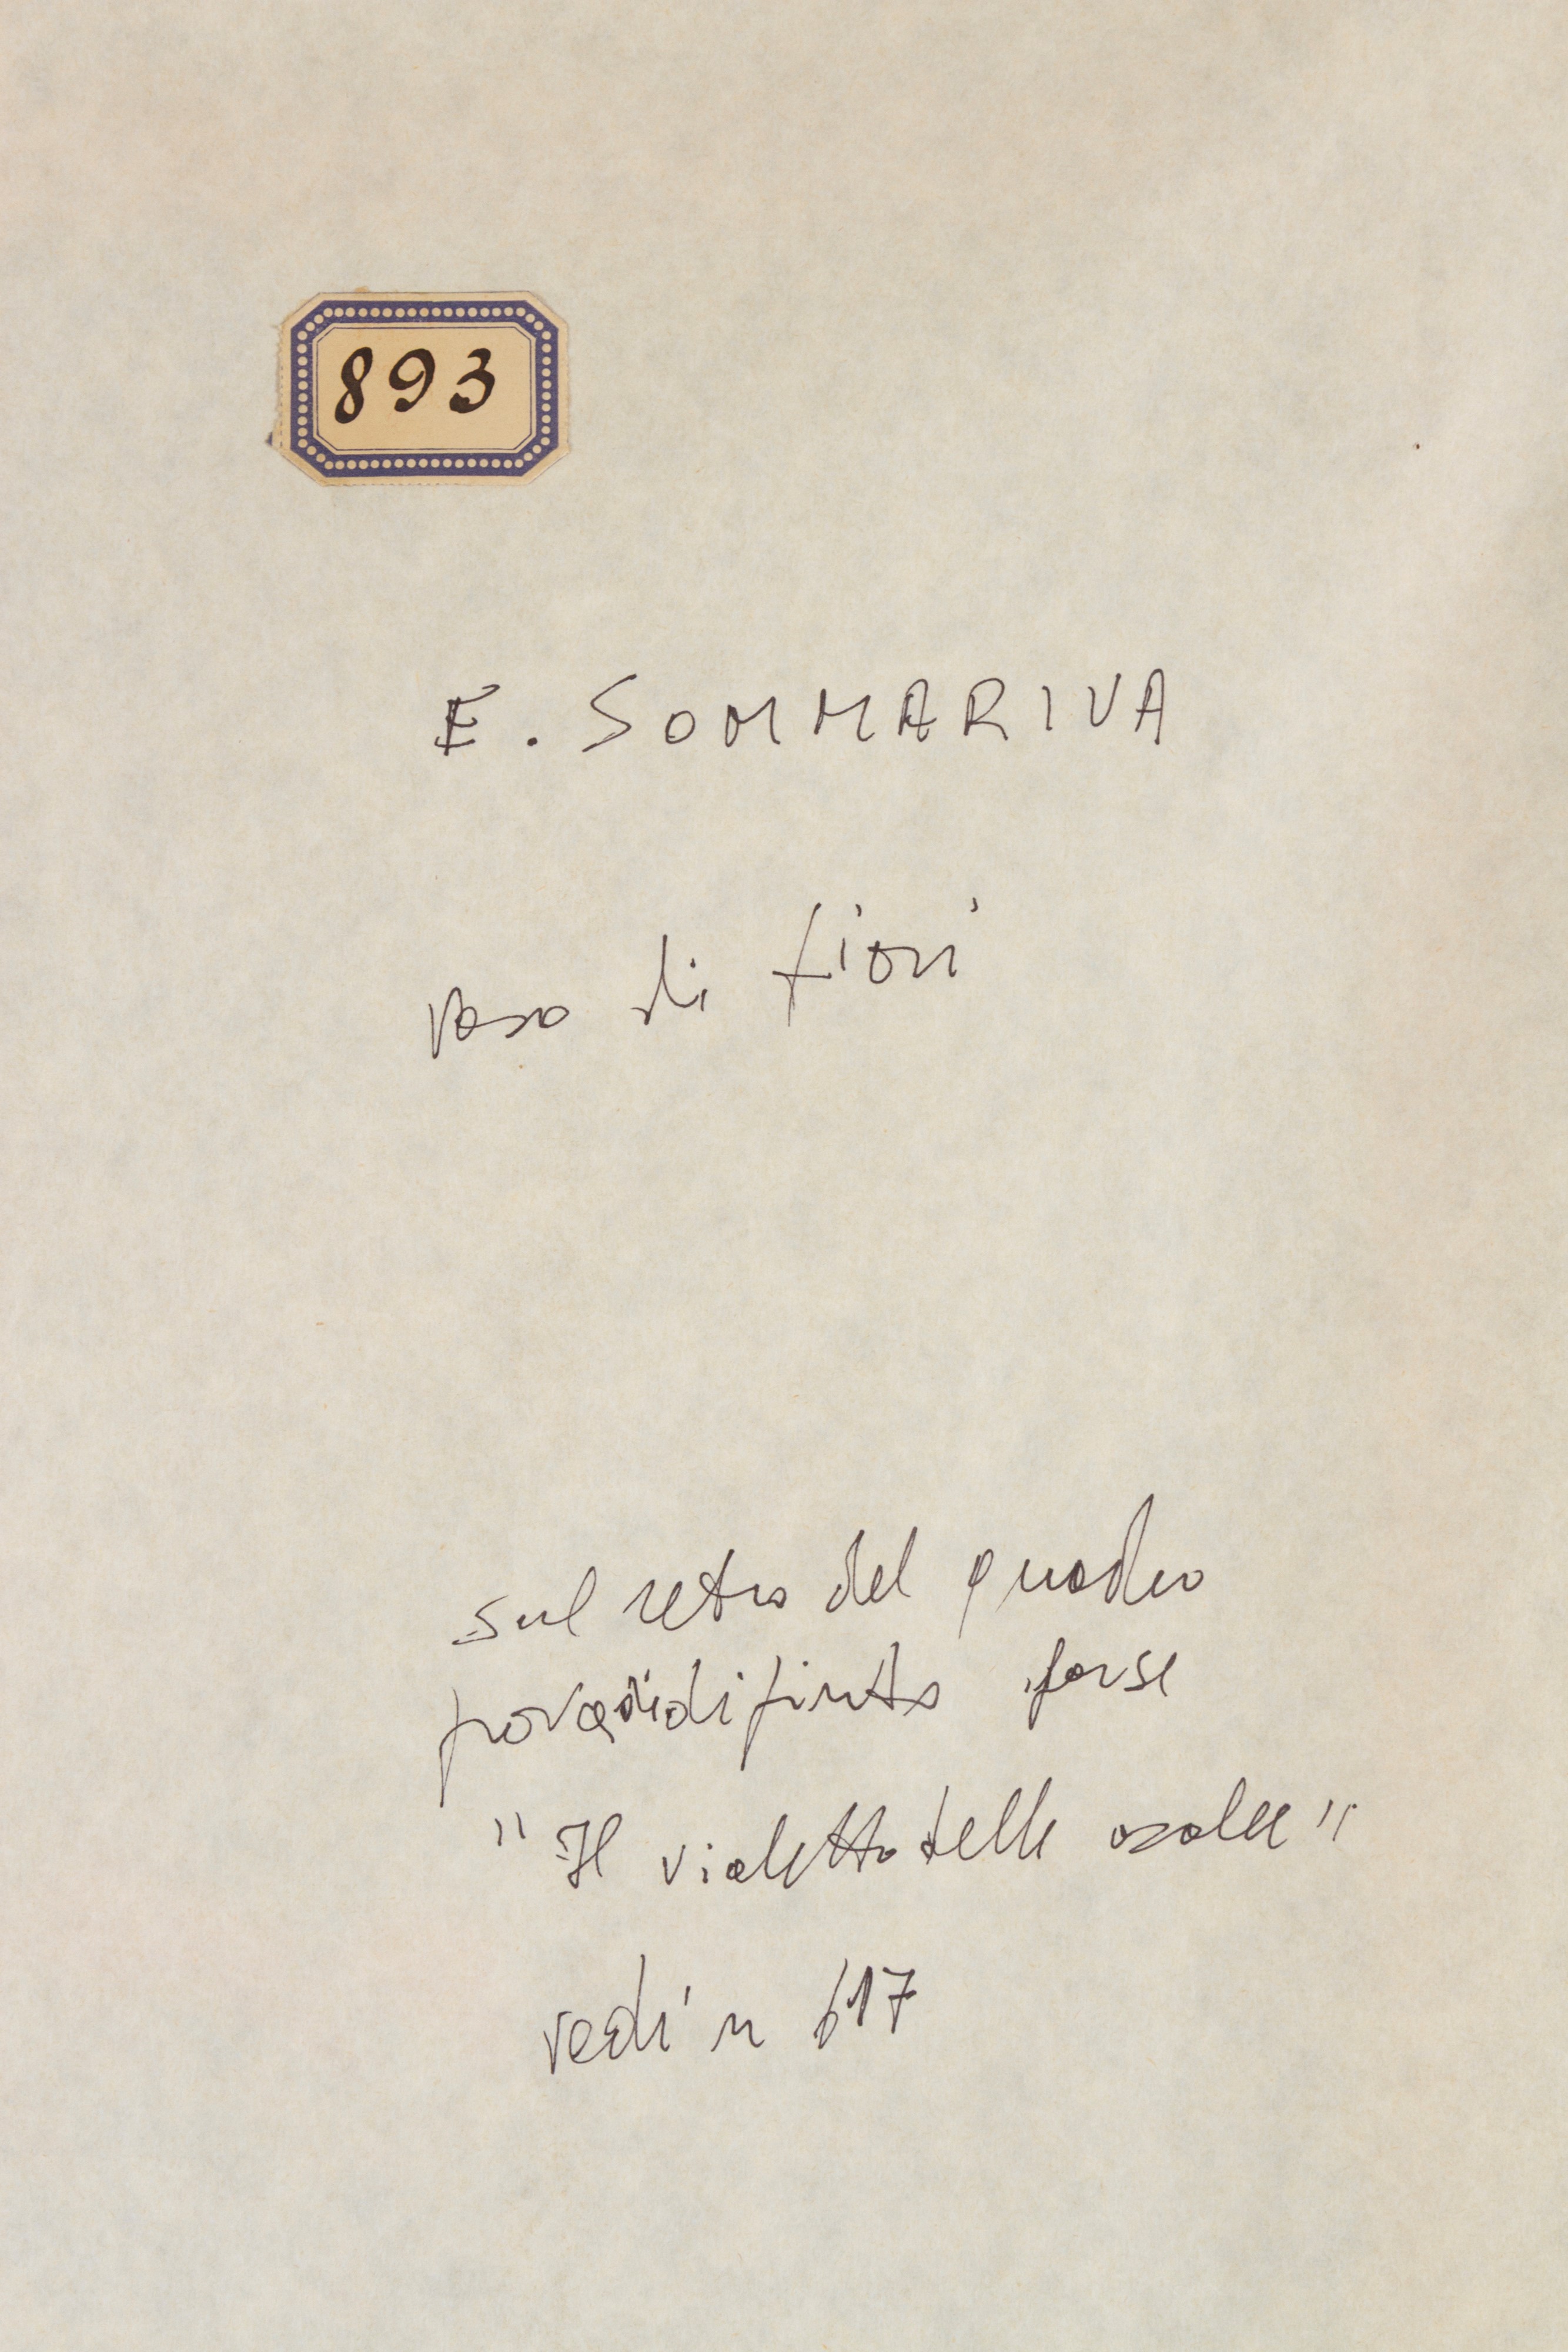 893
E. SOMMARIVA
vaso di fiori
sul retro del quadro
prova di dipinto forse
"Il vialetto delle azalee"
vedi n 617